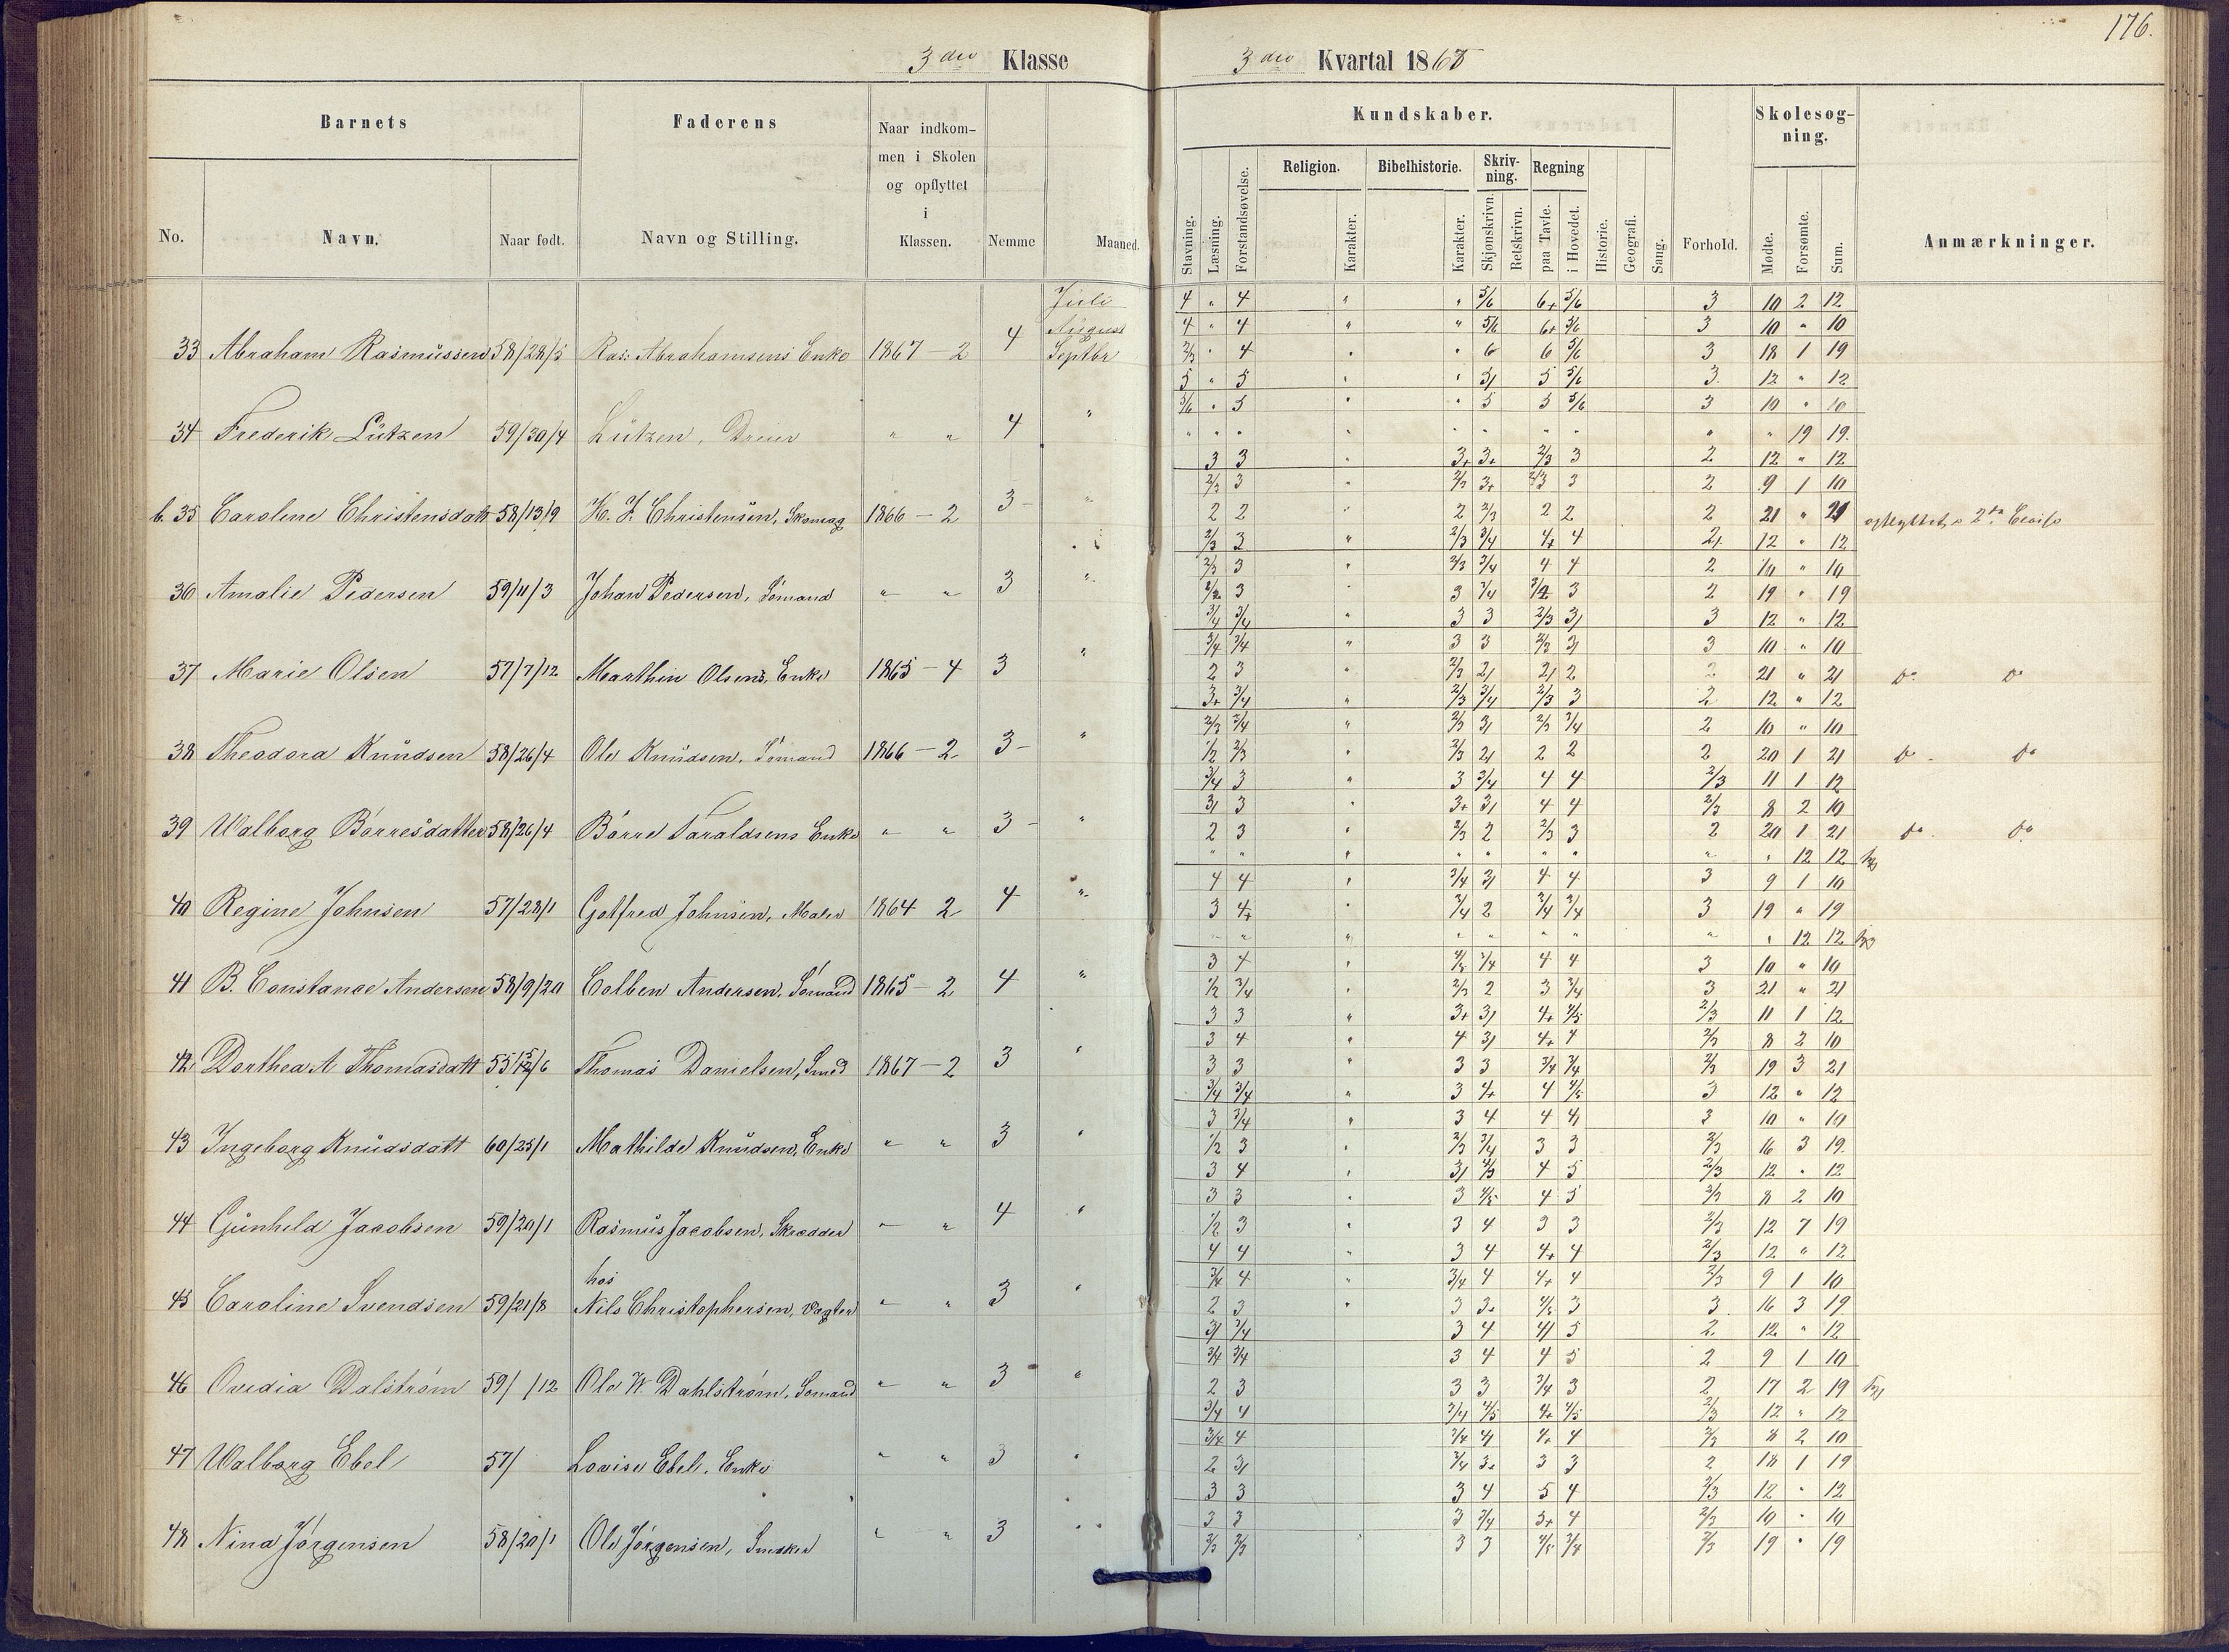 176.
3die Klasse 3die Kvartal 1868
Barnets Faderens Naar indkom-
men i Skolen
og opflyttet
i
Klassen. Nemme Maaned.
No. Navn. Naar født. Navn og Stilling.
Kundskaber. Skolesøg-
ning.
Religion. Bibelhistorie. Skriv-
ning. Regning
Stavning. Læsning. Forstandsøvelse. Karakter. Karakter. Skjønskrivn. Retskrivn. paa Tavle. i Hovedet. Historie. Geografi. Sang. Forhold. Mødte. Forsømte. Sum. Anmærkninger.
Juli 4 " 4 " " 5/6 6+ 5/6 3 10 2 12
August 4 " 4 " " 5/6 6+ 5/6 3 10 " 10
33 Abraham Rasmussen 58/28/5 Ras: Abrahamsens Enke 1867 – 2 4 Septbr " 4 " " 6 6 5/6 3 18 1 19
5 " 5 " " 5/ 5 5/6 3 12 " 12
5/6 " 5 " " 5 5 5/6 3 10 " 10
34 Frederik Lützen 59/30/4 Lützen, Dreier " " 4 " " " " " " " " " " " 19 19
3 3 " 3+ 3+ 2/3 3 2 12 " 12
2/3 3 " 2/3 3+ 2/3 3 2 9 1 10
b. 35 Caroline Christensdatt 58/13/9 H. J. Christensen, Skomag 1866 – 2 3 – " 2 2 " 2 2/3 2 2 2 21 " 21 opflyttet i 2den Classe
2/3 3 " 2/3 3/4 4+ 4 2/ 12 " 12
2/3 3 " 2/3 3/4 4 4 2 10 " 10
36 Amalie Pedersen 59/11/3 Johan Pedersen, Sömand " " 3 " 3 " 3 3/4 3 2 19 " 19
3/4 3/4 " 3 3 2/3 3/ 3 12 " 12
3/4 3/4 " 3 3 2/3 3/ 3 10 " 10
37 Marie Olsen 57/7/12 Marthin Olsens, Enke 1865 – 4 3 " 2 3 " 2/3 2/ 2/ 2 2 21 " 21 do do
3+ 3/4 " 2/3 3/4 2/3 3 2 12 " 12
2/3 3/4 " 2/3 3/ 2/3 3/4 2 10 " 10
38 Theodora Knudsen 58/26/4 Ole Knudsen, Sömand 1866 – 2 3 – " 1/2 2/3 " 2/3 2/ 2 2 2 20 1 21 do do
3/4 3 " 3 3/4 4 4 2/3 11 1 12
3/ 3 " 3+ 3/ 4 4 2/3 8 2 10
39 Walborg Börresdatter 58/26/4 Börre Taraldsens Enke " " 3 – " 2 3 " 2/3 2 2/3 3 2 20 1 21 do do
" " " " " " " " " 12 12
4 4 " 3/4 3/ 4 4 3 9 1 10
40 Regine Johnsen 57/28/1 Gotfred Johnsen, Maler 1864 2 4 " 3 4+ " 3/4 2 3/4 3/4 3 19 " 19
" " " " " " " " " 12 12
3 4 " 3/4 4 4 3 10 " 10
41 B. Constance Andersen 58/9/20 Colben Andersen, Sömand 1865 – 2 4 " 1/2 3/4 " 2/3 2 3 3/4 3 21 " 21
3 3 " 3+ 3/ 4+ 4/5 2/3 11 1 12
3 4 " 4 3/ 4+ 4 2/3 8 2 10
42 Dorthea A Thomasdatt 55/ /6 Thomas Danielsen, Smed 1867 – 2 3 " 3 3 " 3 3 3/4 3/4 2/3 19 3 21
3/4 3/4 " 3 4+ 4 4/5 3 12 " 12
3 3/4 " 3 4 4 4/ 3 10 " 10
43 Ingeborg Knudsdatt 60/25/1 Mathilde Knudsen, Enke " " 3 " 1/2 3 " 2/3 3/4 3 3 2/3 16 3 19
3 4 " 3/ 4/5 4 5 2/3 12 " 12
3 3 " 3 4/5 4 5 2/3 8 2 10
44 Günhild Jacobsen 59/20/1 Rasmus Jacobsen, Skrædder " " 4 " 1/2 3 " 3 4 3 3 2/3 12 7 19
4 4 " 3 4 4+ 4 2/3 12 " 12
hos 3/4 4 " 3/4 4 4+ 4 2/3 9 1 10
45 Caroline Svendsen 59/21/8 Nils Christophersen, Vægter " " 3 " 2 3 " 3 3+ 3 3 16 3 19
3/ 3/4 3 4 4/ 5 2 12 " 12
3/4 3/4 3 4 4 5 2 9 1 10
46 Ovedia Dalström 59/ /12 Ole W. Dahlström, Somand " " 3 " 2 3 3 3 3/4 3 2 17 2 19
3/4 4 3/4 4/5 4+ 4/5 2/3 12 " 12
3/4 4 3/4 4/ 4+ 4 2/3 8 2 10
47 Walborg Ebel 57/ Lovise Ebel, Enke " " 3 " 2 3/ 3/4 3+ 3 3 2 18 1 19
3 3 3 4 5 4 2/3 12 " 12
3 3 3 3/4 3+ 4 2/3 10 " 10
48 Nina Jörgensen 58/20/1 Ole Jörgensen, Snedker " " 3 " 2/3 2/3 3 3 3/4 2/3 19 " 19